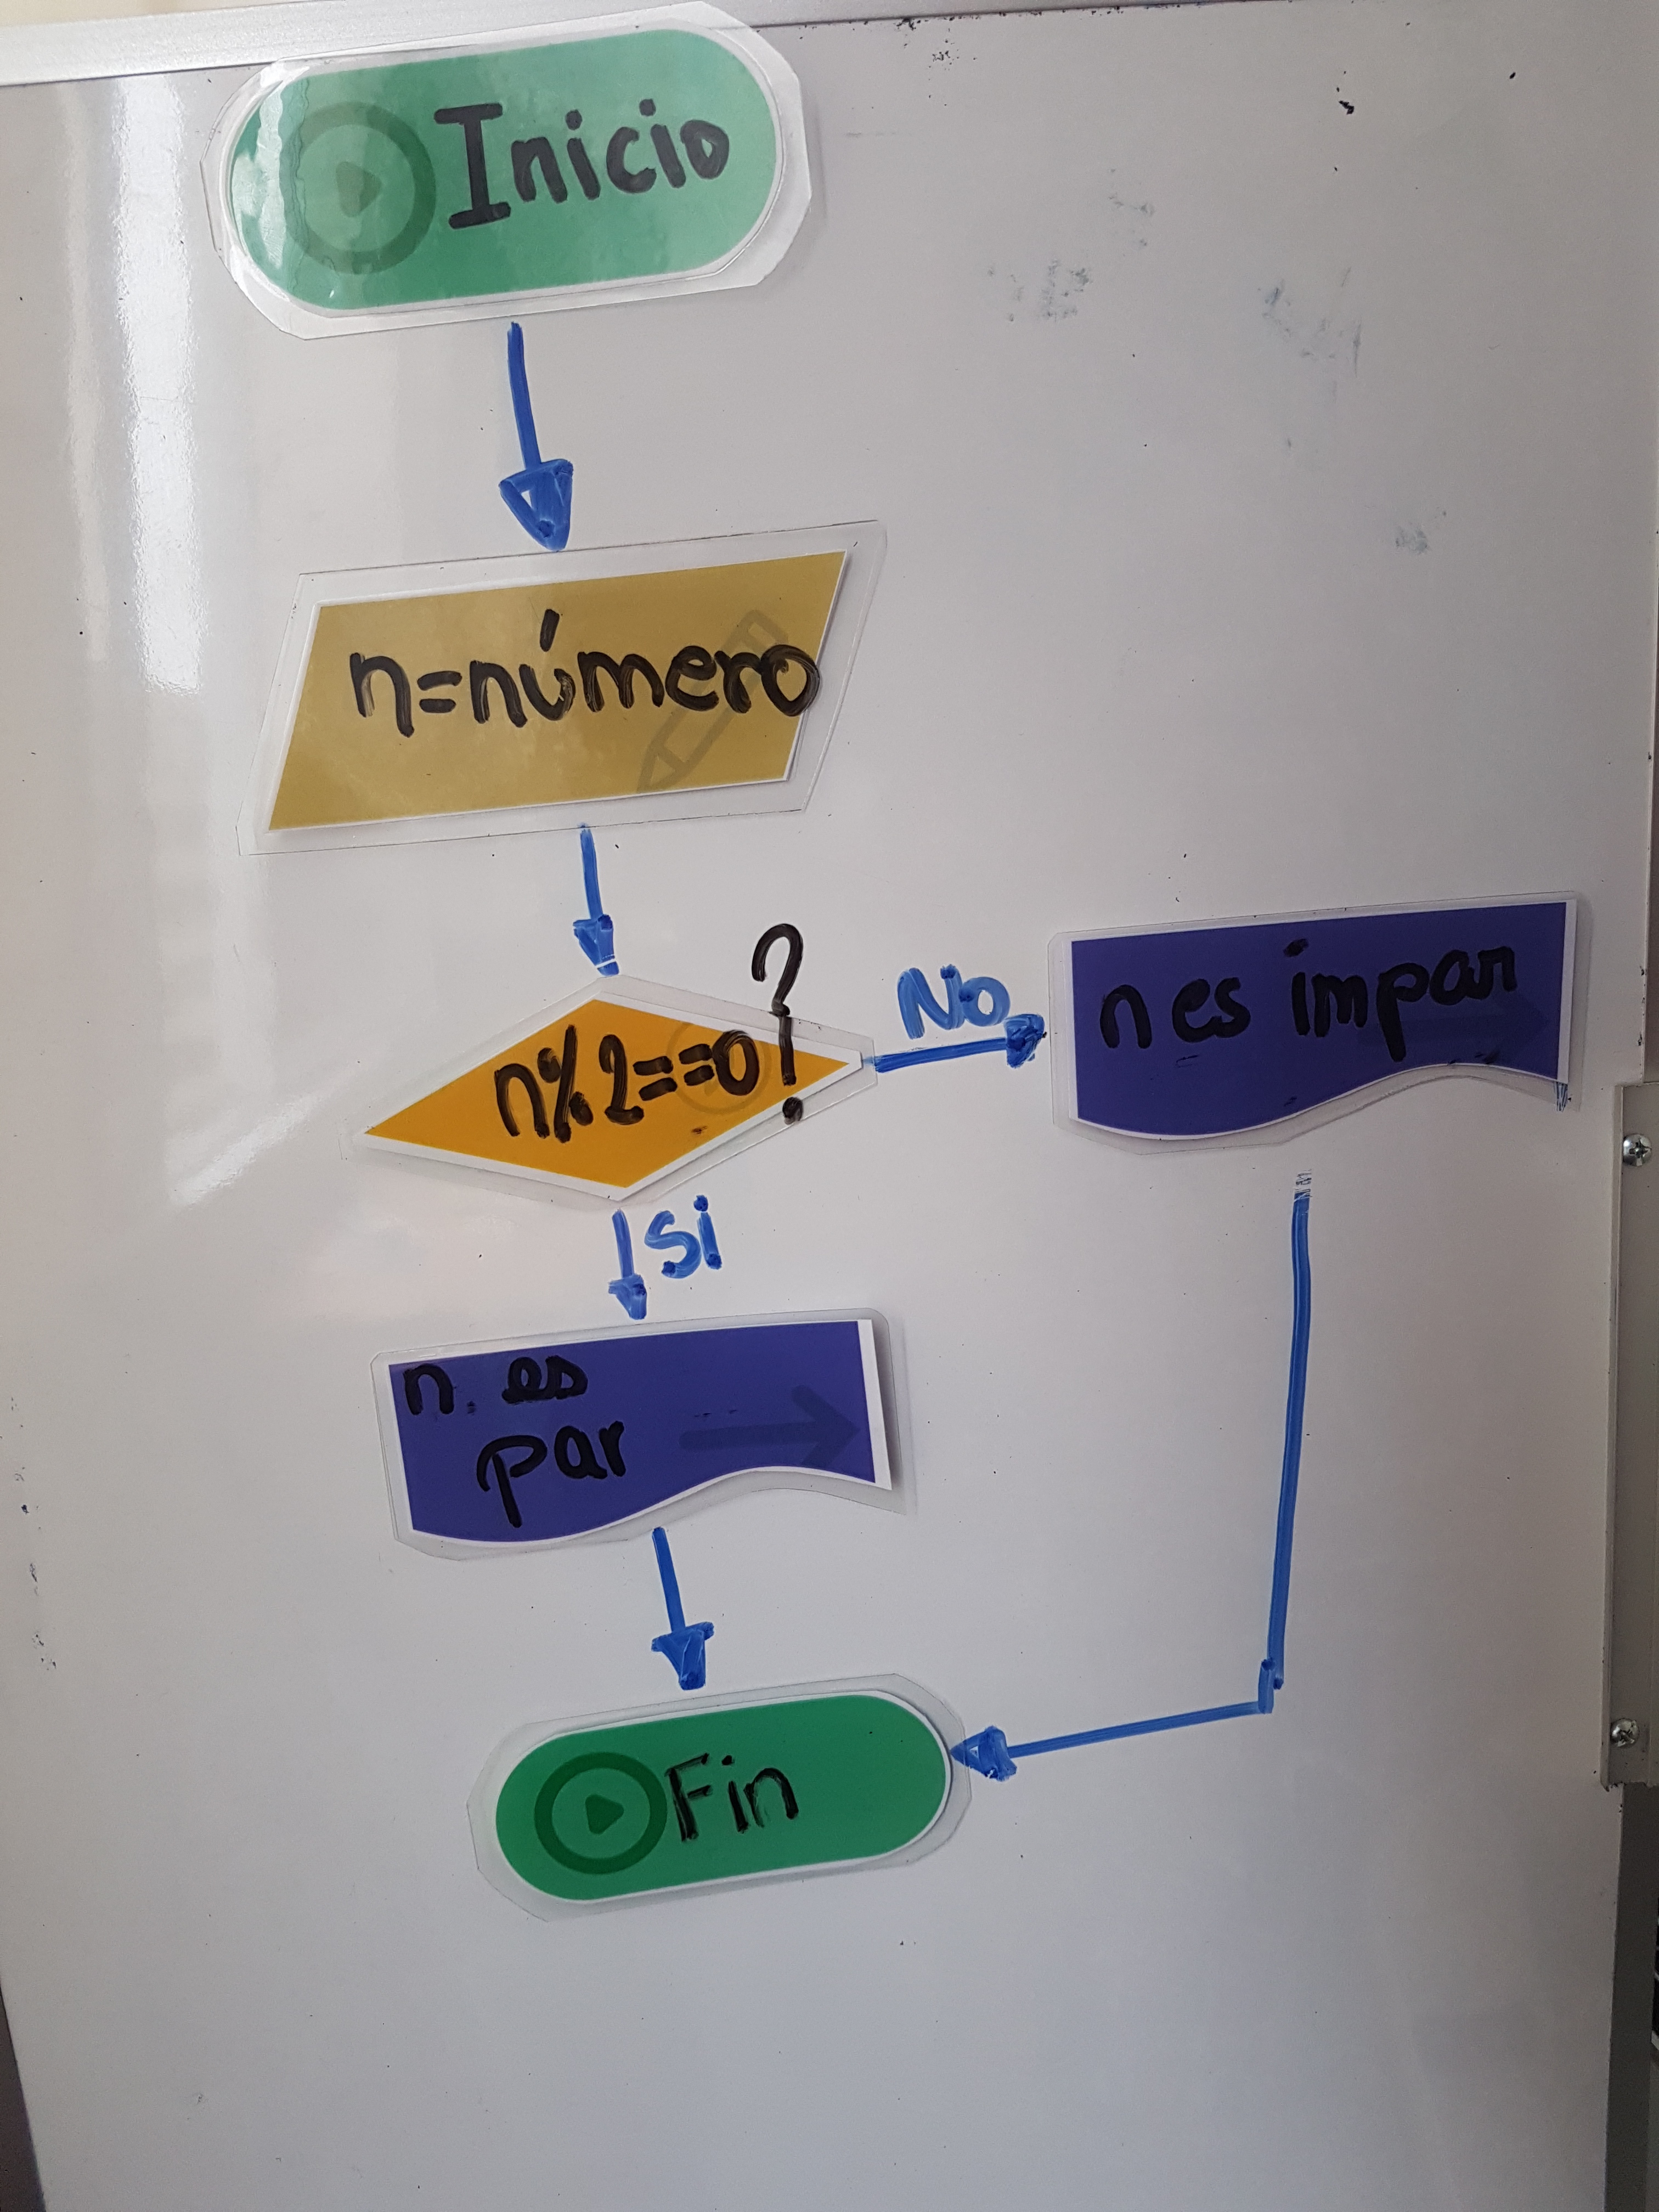 Inicio
n=número
n%2==0?
No
n es impar
Si
n. es
par
Fin